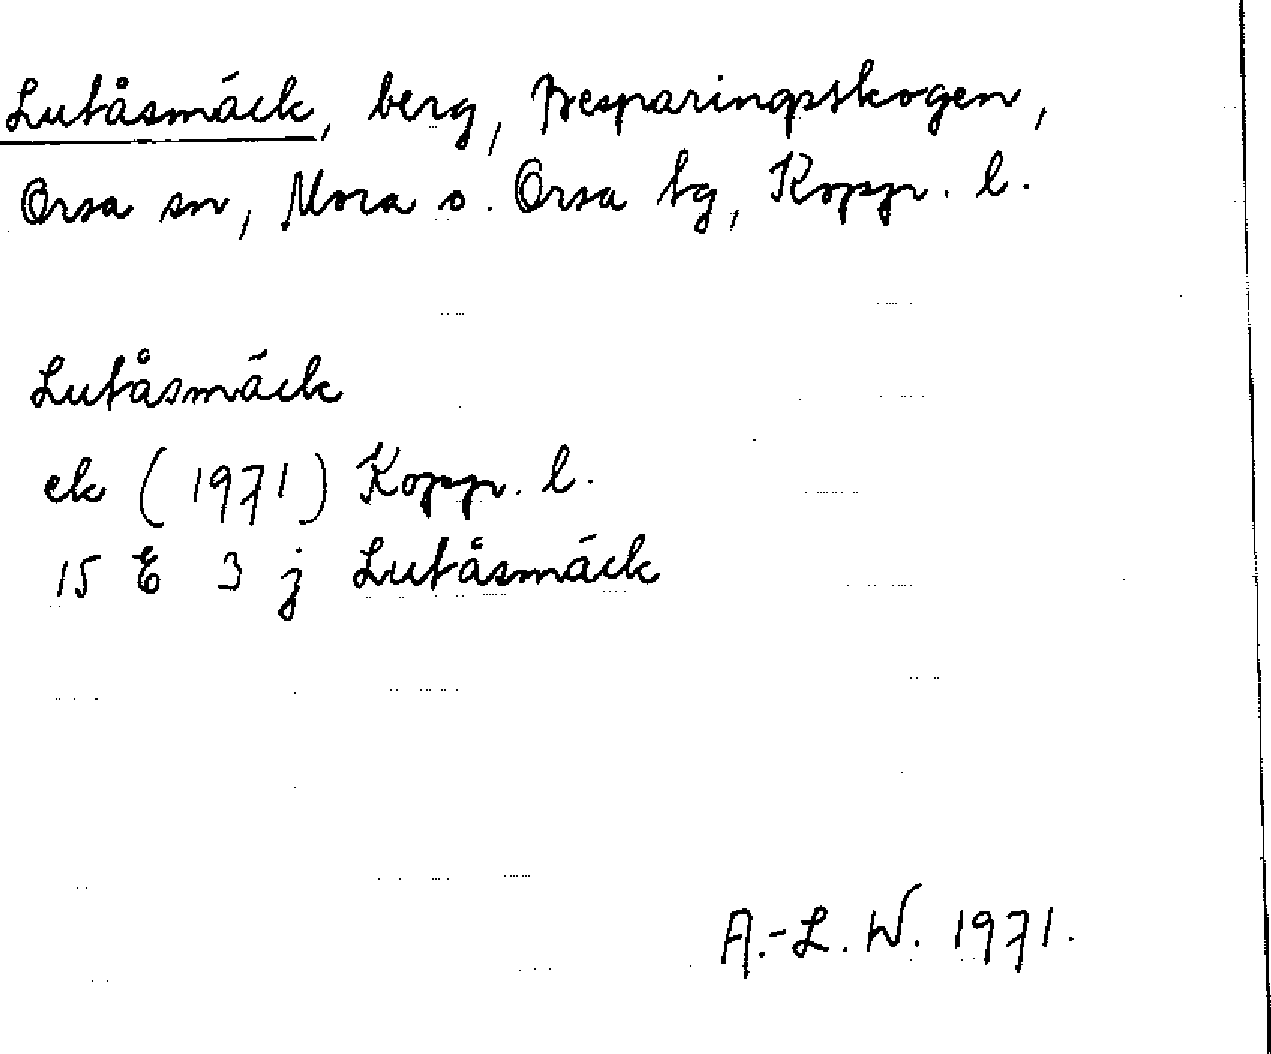 Lutåsmäck, berg, Besparingsskogen,
Orsa sn, Mora o. Orsa tg, Koppr. l.
Lutåsmäck
ek (1971) Koppr. l.
15 E 3 j Lutåsmäck
A.-L. W. 1971.